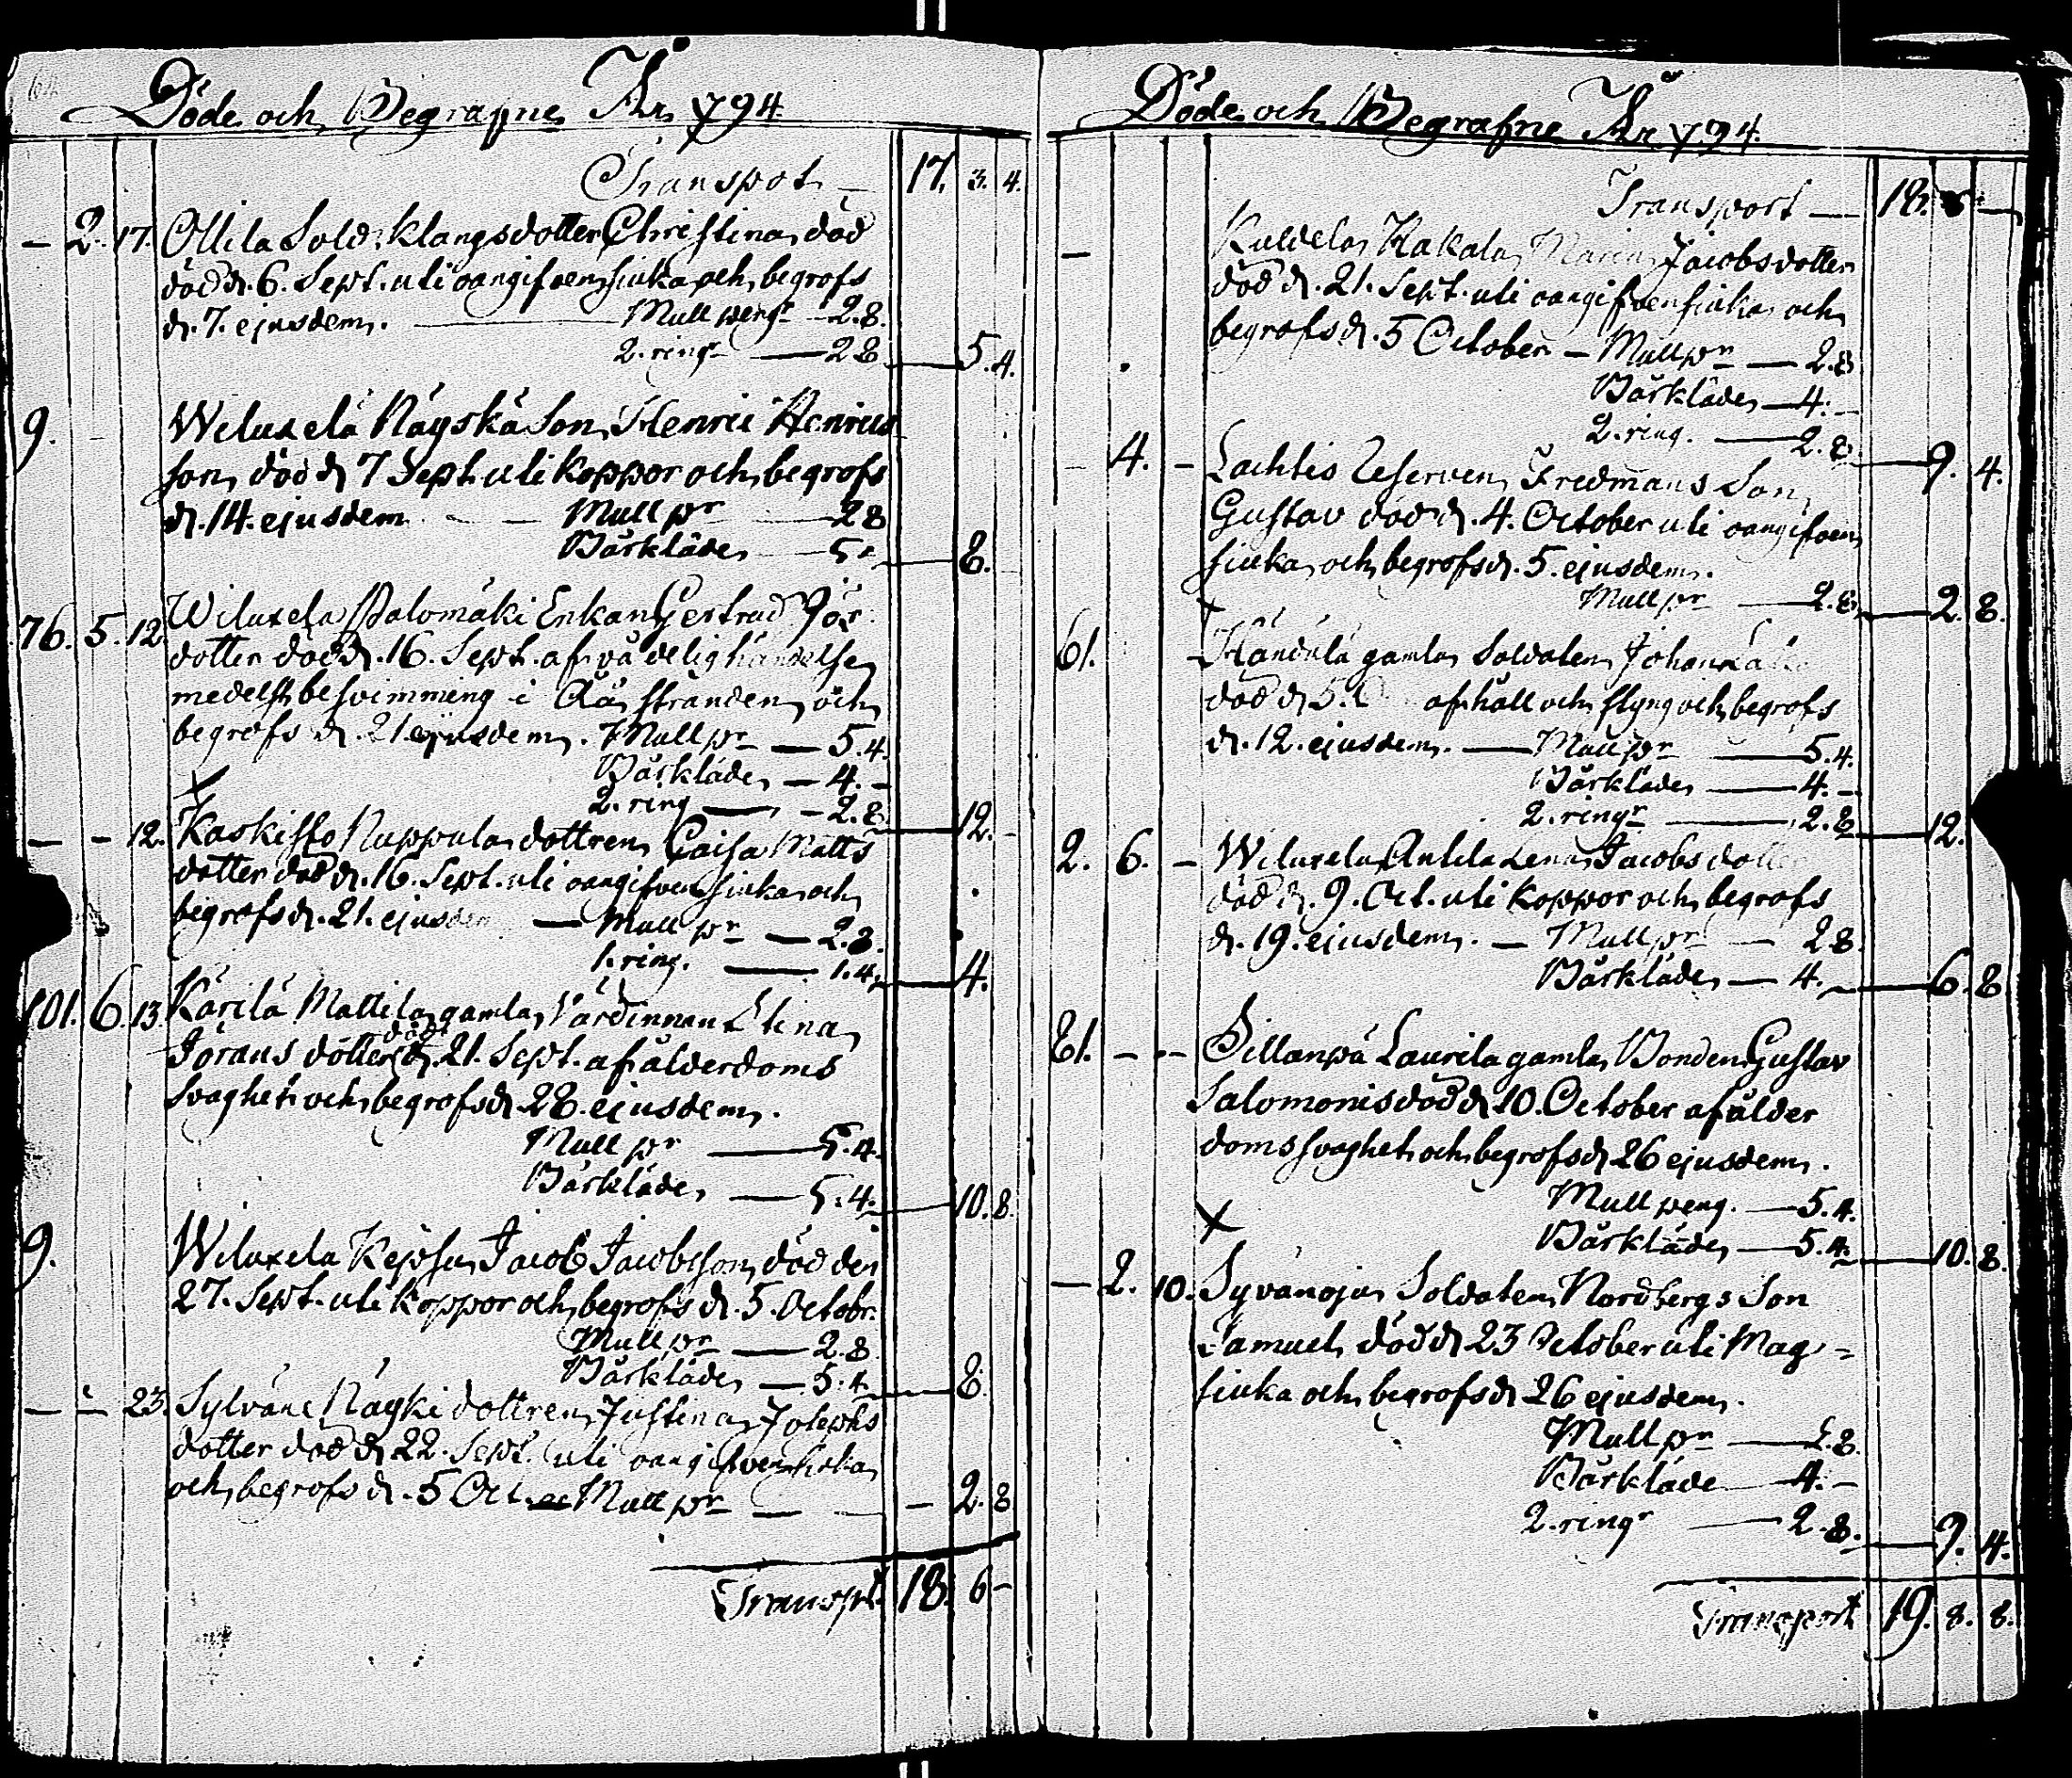 Döde och Begrafne År 1794.
Transport — 17. 3. 4.
— 2. 17. Ollila Sold. Klangs dotter Christina död
död d. 6. Sept. uti oangifven siuka och begrofs
d. 7. ejusdem. — Mull pengr — 2.8.
2. ringr — 2.8 — 5. 4.
9. Wiluxela Näyskä Son Henric Henrics
son död d 7 Sept. uti koppor och begrofs
d. 14. ejusdem — Mull pr — 2 8
Bårkläde — 5 — 8.
76. 5. 12. Wiluxela Palomäki Enkan Gertrud Jör
dotter död d. 16. Sept. af vådelig händelse
medelst besvimming i Åstranden och
begrofs d. 21 ejusdem. Mull pr — 5.4.
Bårkläde — 4. –
2. ring — 2.8. — 12.
— – 12. Kaskisto Nuppula dottren Caisa Matts
dotter död d. 16. Sept. uti oangifven siuka och
begrofs d. 21. ejusdem — Mull pr — 2.8.
1. ring. — 1.4. — 4.
101. 6. 13. Kärilä Mattila gamla Värdinnan Elina
Jörans dotter död d. 21. Sept. af ålderdoms
svaghet och begrofs d 28. ejusdem.
Mull pr — 5.4.
Bårkläde — 5.4. — 10. 8.
9. Wiluxela Jacob Jacobsson död den
27. Sept. uti koppor och begrofs d. 5. Octobr.
Mull pr — 2.8
Bårkläde — 5.4. — 8.
— — 23. Sylväne Näyki dottren Justina Josephs
dotter död d 22. Sept. uti oangifven siuka
och begrofs d. 5 Oct. Mull pr — – 2. 8
Transpt. 18. 6 –
Döde och Begrafne År 1794.
Transport — 18. 6 —
— Kuldela Kakala Maria Jacobs dotter
död d. 21. Sept. uti oangifven siuka och
begrofs d. 5 October – Mull pr — 2.8
Bårkläde — 4. –
2. ring. — 2.8 — 9. 4.
– 4. – Lachtis Reserven Fredmans Son
Gustav död d. 4. October uti oangifven
siuka och begrofs d. 5. ejusdem.
Mull pr — 2.8. — 2. 8.
61. Händälä gamla Soldaten Johan
död d 5. af håll och styng och begrofs
d. 12. ejusdem. — Mull pr — 5.4.
Bårkläde — 4. –
2. ringr — 2.8 — 12.
2. 6. – Wiluxela Anttila Lena Jacobs dotter
död d. 9. Oct. uti koppor och begrofs
d. 19. ejusdem. — Mull pr — 2 8.
Bårkläde — 4. — 6. 8
81. – – Sillanpä Laurila gamla Bonden Gustav
Salomonis död d 10. October af ålder
doms svaghet och begrofs d 26 ejusdem.
Mull peng. — 5.4.
Bårkläde — 5.4. — 10. 8.
— 2. 10. Syvänoja Soldaten Nordbergs Son
Samuel död d 23 October uti Mag =
siuka och begrofs d 26 ejusdem.
Mull pr — 2.8.
Bårkläde — 4. –
2. ringr — 2.8. — 9. 4.
Transport 19. 8. 8.